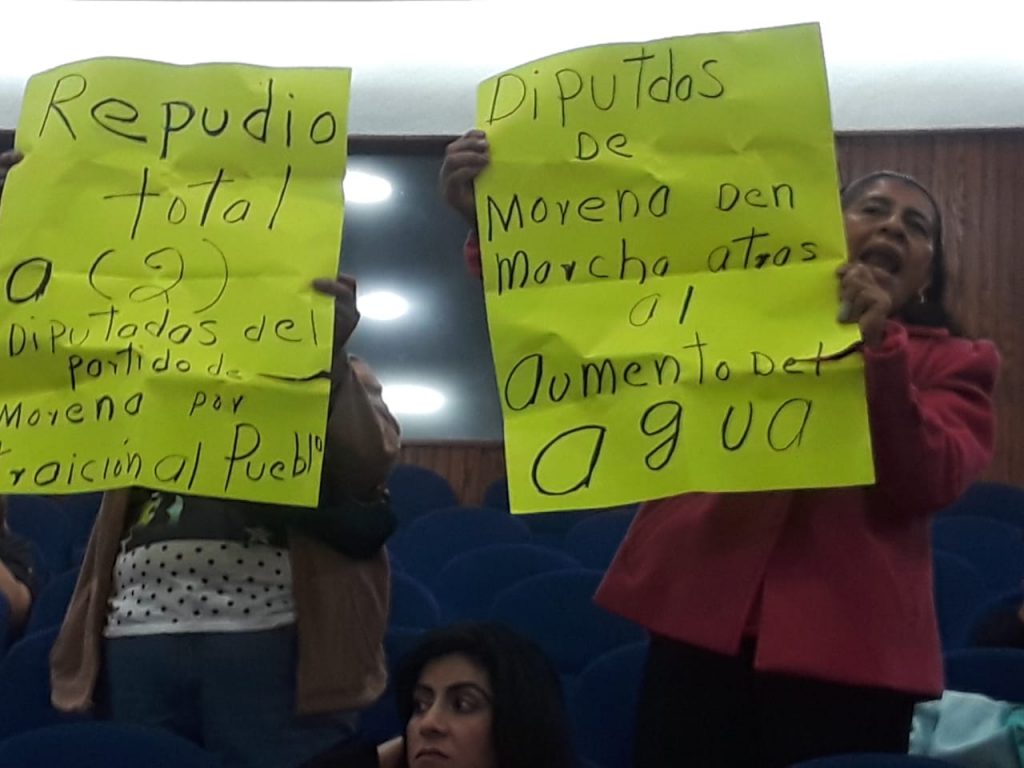 Repudio
total
a (2)
Diputados del
partido de
Morena por
traición al Pueblo
Diputdos
De
Morena Den
marcha atras
al
aumento Del
agua